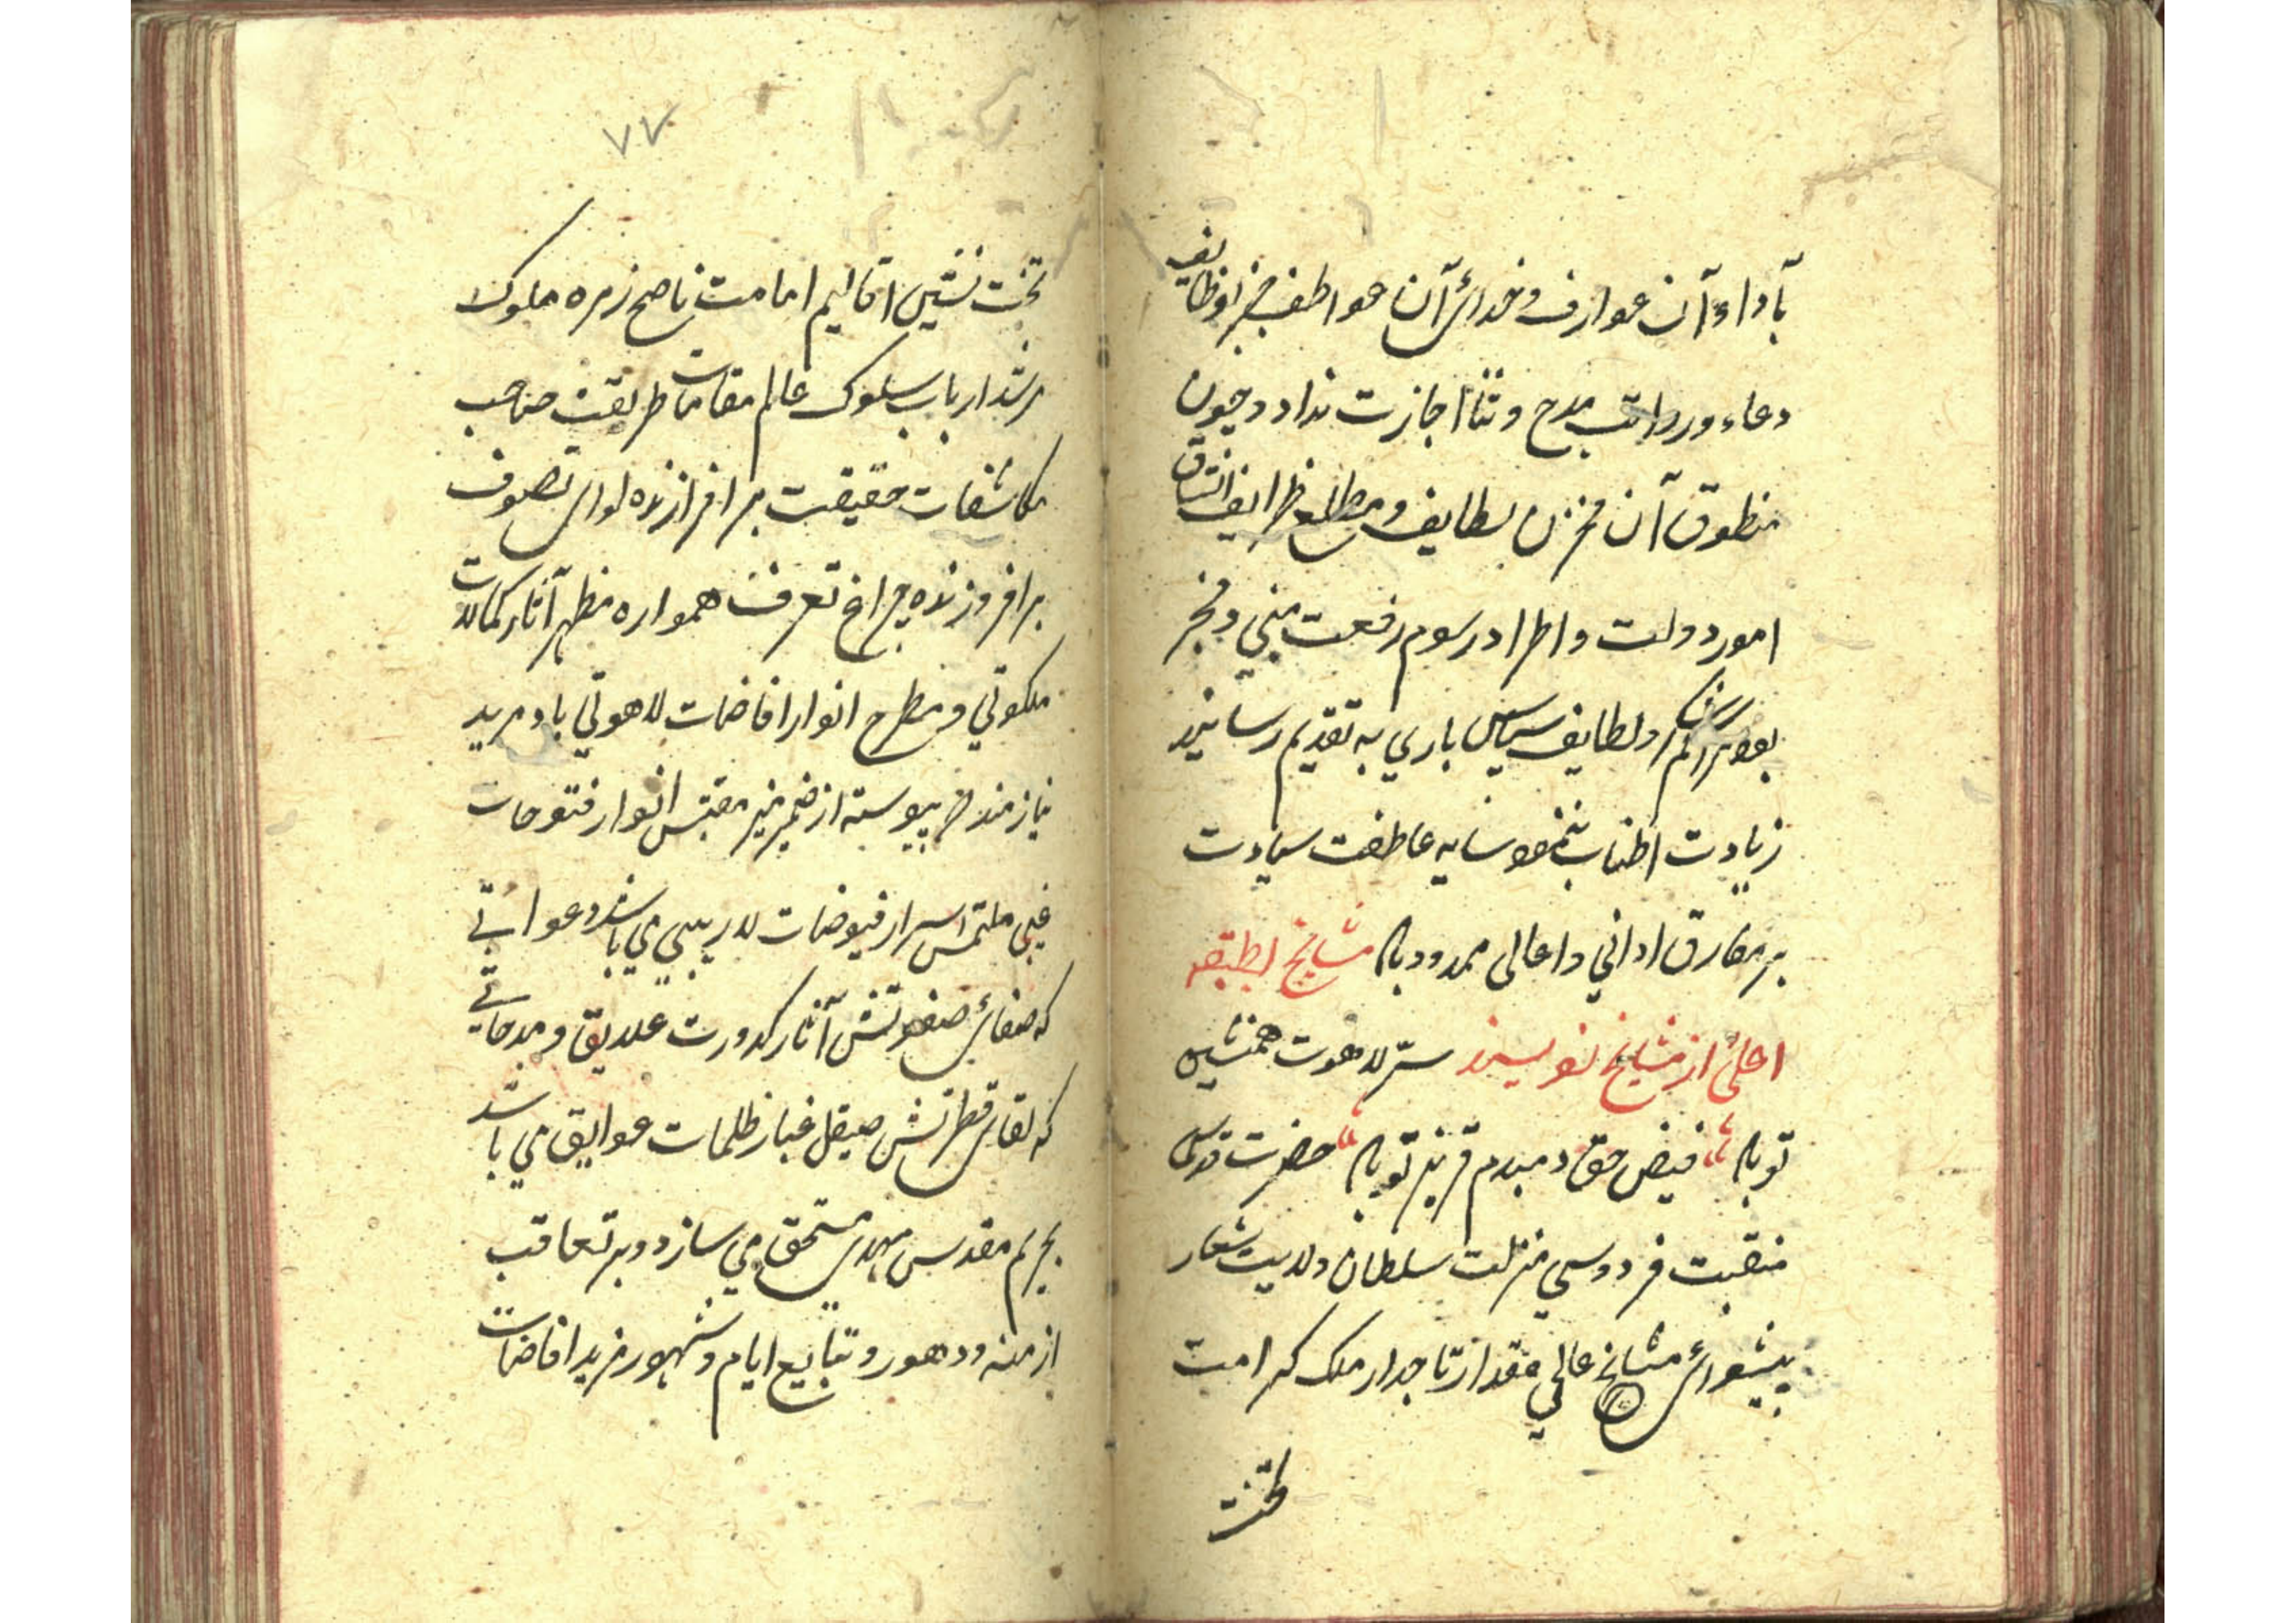 بأداء آن عوارف و خدائ آن عواطف جز وظایف
دعاء و رواتب مدح و ثنا اجازت نداد و چون
منطوق آن مخزن لطایف و مطلع ظرایف اتساق
امور دولت و اطراد رسوم رفعت مبني و مخبر
ولطایف سپاس باري به تقدیم رسانید
زیادت اطناب ننمود سایه عاطفت سیادت
بر مفارق اداني و اعالی ممدود باد مشایخ بطبقه
اعلئ از مشایخ نویسند سرّ لاهوت همنشین
تو باد فیض حق دمبدم قرین تو باد حضرت قدسی
منقبت فردوسي منزلت سلطان ولایت شعار
پیشوائ مشایخ عالي مقدار تاجدار ملک کرامت
تخت
۷۷
تخت نشین اقالیم امامت ناصح زمره ملوک
مرشد ارباب سلوک عالم مقامات طریقت صاحب
مکاشفات حقیقت برافرازنده لوای تصوف
برافروزنده چراغ تعرف همواره مظهر آثار کمالات
ملکوتي و مطرح انوار افاضات لاهوتي باد مرید
نیازمند که پیوسته از ضمیر منیر مقتبس انوار فتوحات
غیبی ملتمس اسرار فیوضات لاریبي مي باشد دعواتی
که صفائ صفوتش آثار کدورت علایق و مدحاتی
که لقای فطرتش صیقل غبار ظلمات عوایق مي باشد
بحریم مقدس مهدی مستحق مي سازد و بر تعاقب
ازمنه و دهور و تتابع ایام و شهور مزید افاضات